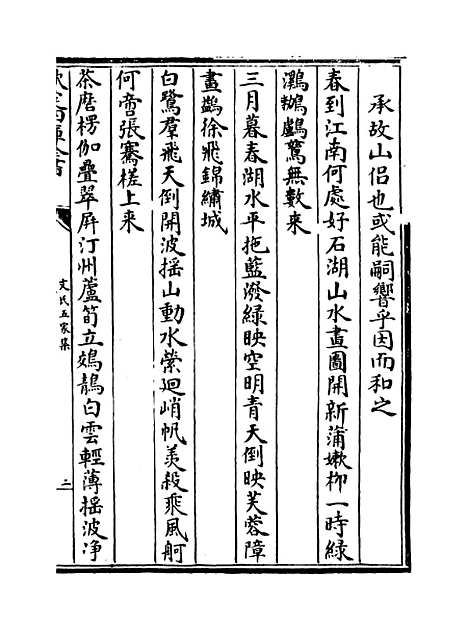 承故山侣也或能嗣響乎因而和之
春到江南何處好石湖山水畫圖開新蒲嫰栁一時緑
鸂鷘鸕鶿無數来
三月暮春湖水平拖藍潑緑映空明青天倒映芙蓉障
畫鷁徐飛錦繡城
白鷺羣飛天倒開波摇山動水縈迴峭帆羙殺乘風舸
何啻張騫槎上来
茶磨楞伽疊翠屛汀州蘆筍立鵁鶄白雲輕薄摇波净
文氏五家集
二